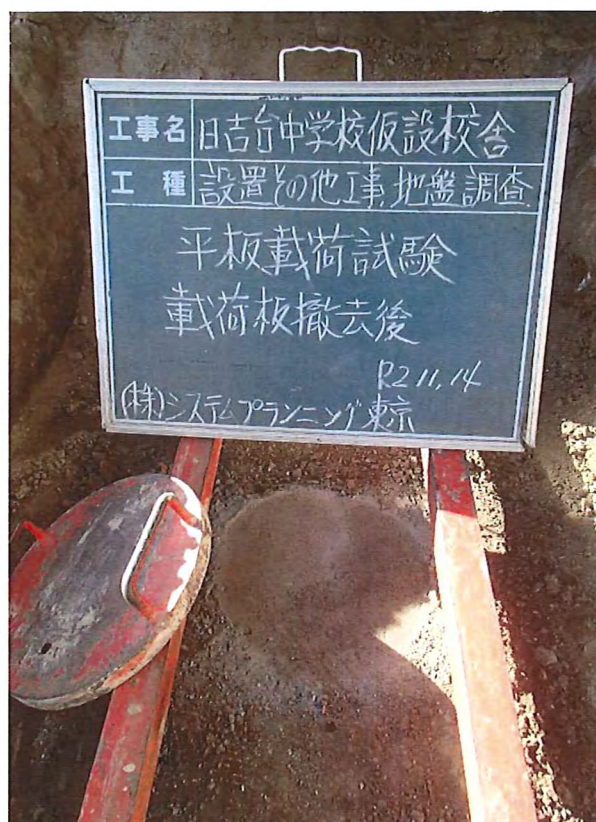 工事名 日吉台中学校仮設校舎
工種 設置その他工事 地盤調査
平板載荷試験
載荷板撤去後
R2 11.14
(株)システムプランニング東京